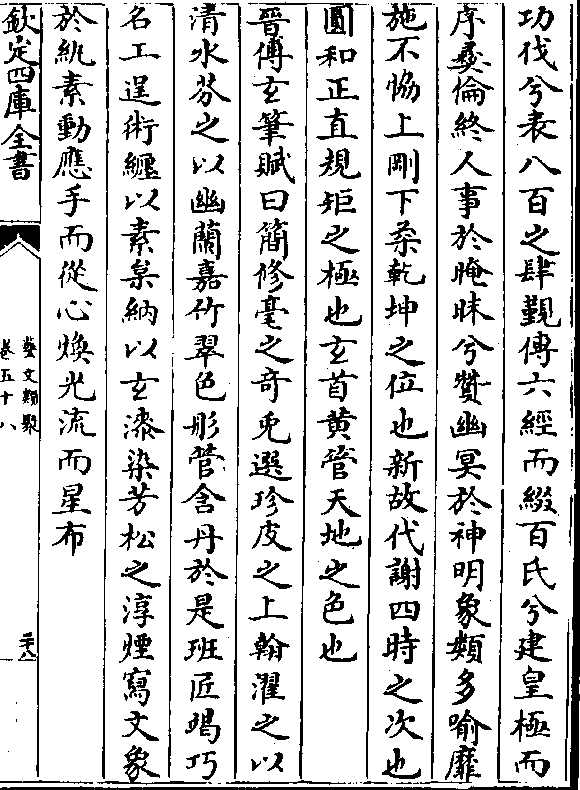 功伐兮表八百之肆覲傳六經而綴百氏兮建皇極而
序彝倫終人事於晻昧兮贊幽冥於神明象類多喻靡
施不恊上剛下柔乾坤之位也新故代謝四時之次也
圓和正直規矩之極也玄首黃管天地之色也
晉傅玄筆賦曰簡修毫之奇兎選珍皮之上翰濯之以
清水芬之以幽蘭嘉竹翠色彤管含丹於是班匠竭巧
名工逞術纏以素枲納以玄漆染芳松之淳煙寫文象
於紈素動應手而從心煥光流而星布
欽定四庫全書
藝文類聚
卷五十八
二十八